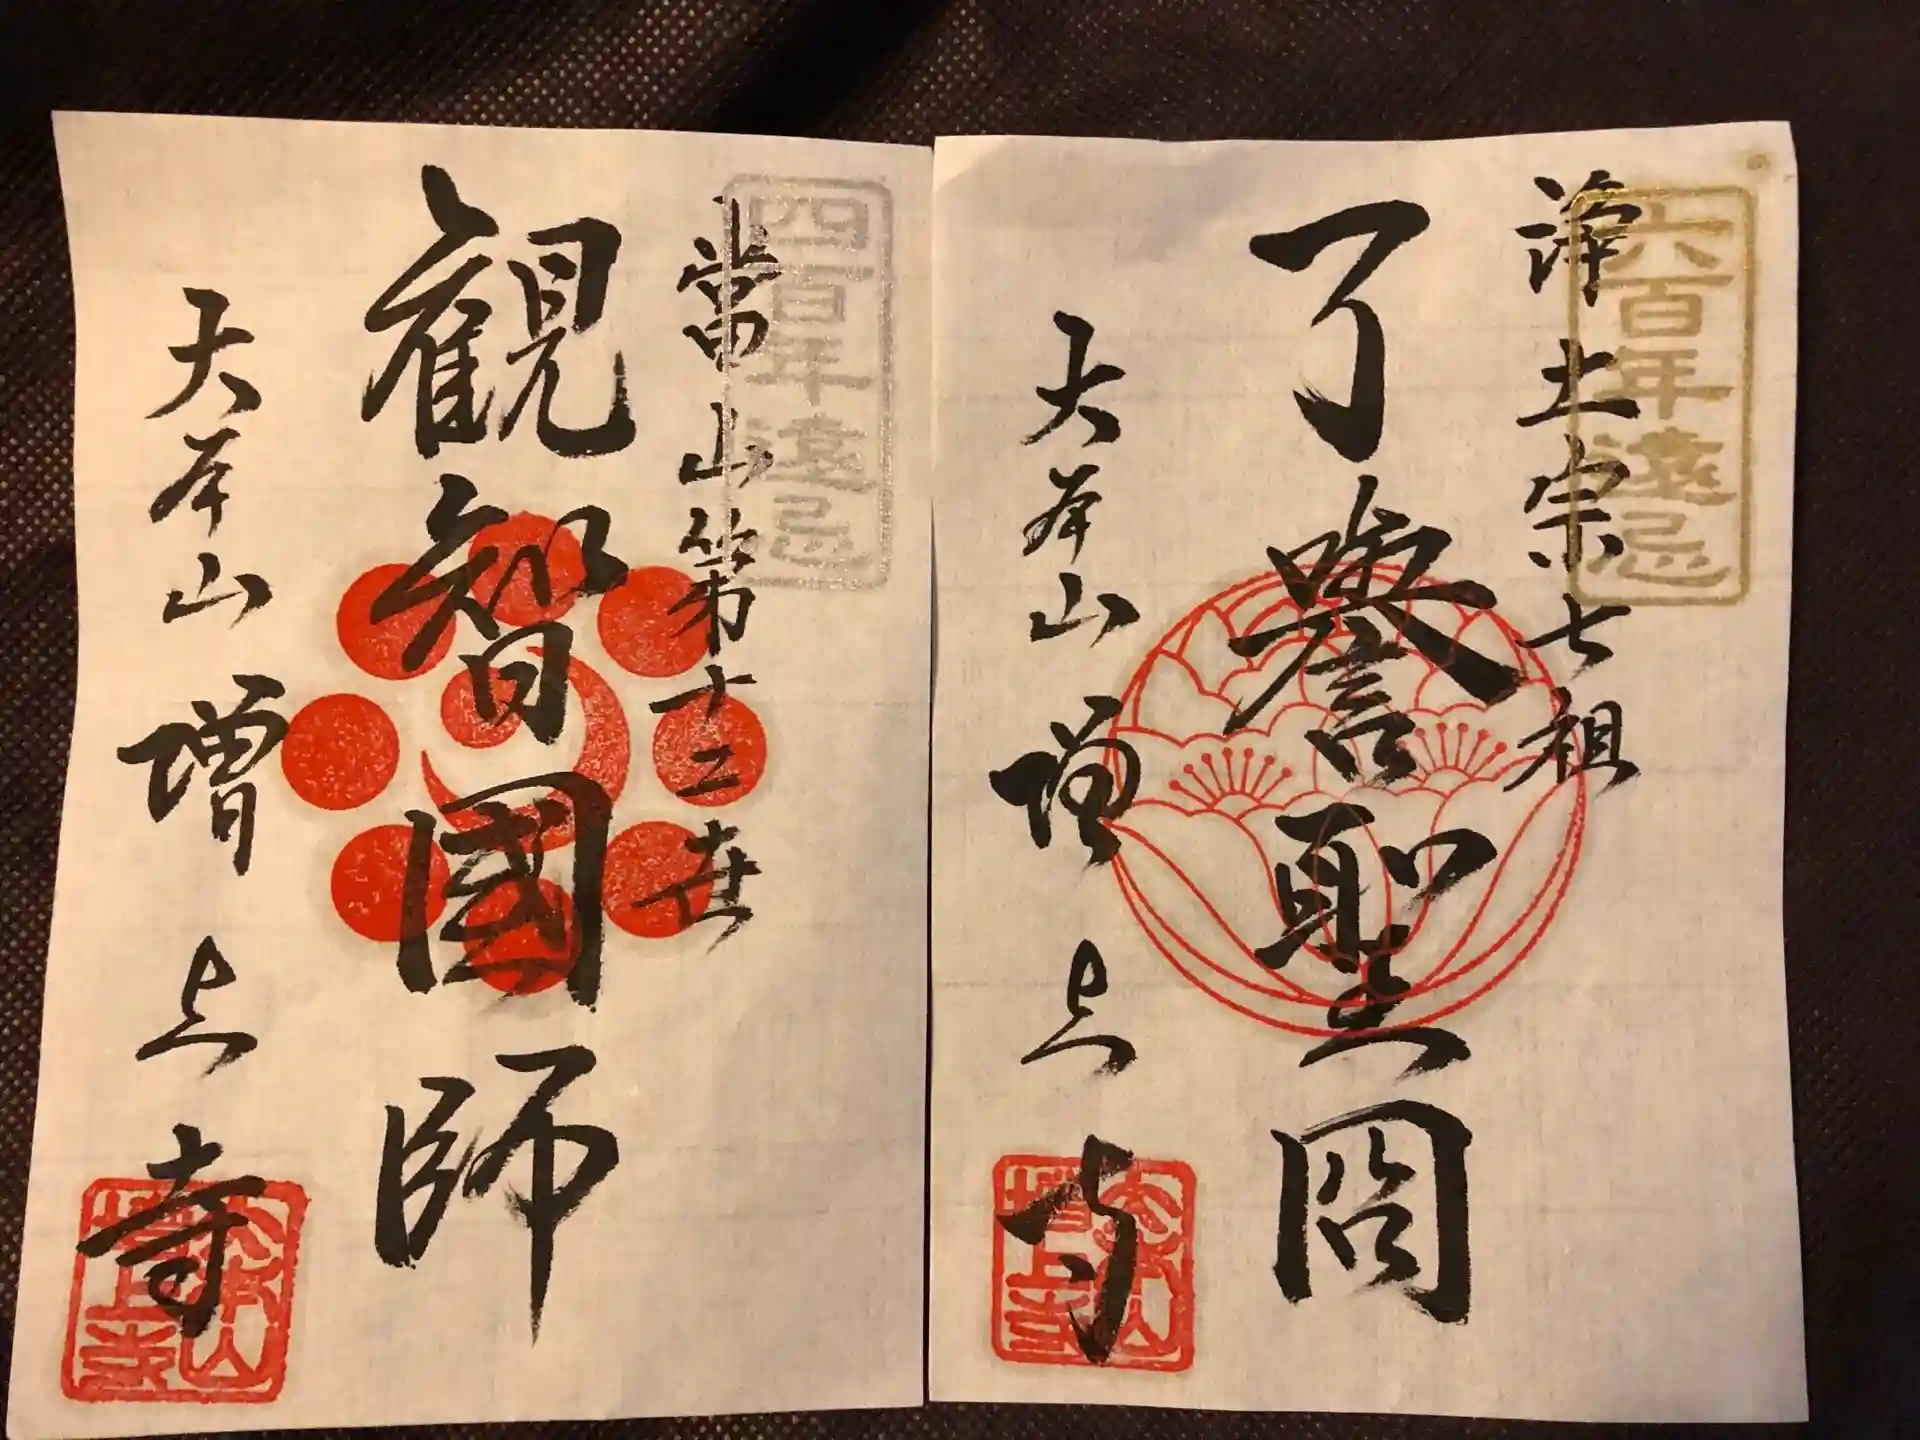 六百年遠忌
浄土宗七祖
了譽聖冏
大本山増上寺
大本山
増上寺
四百年遠忌
當山第十二世
観智國師
大本山増上寺
大本山
増上寺